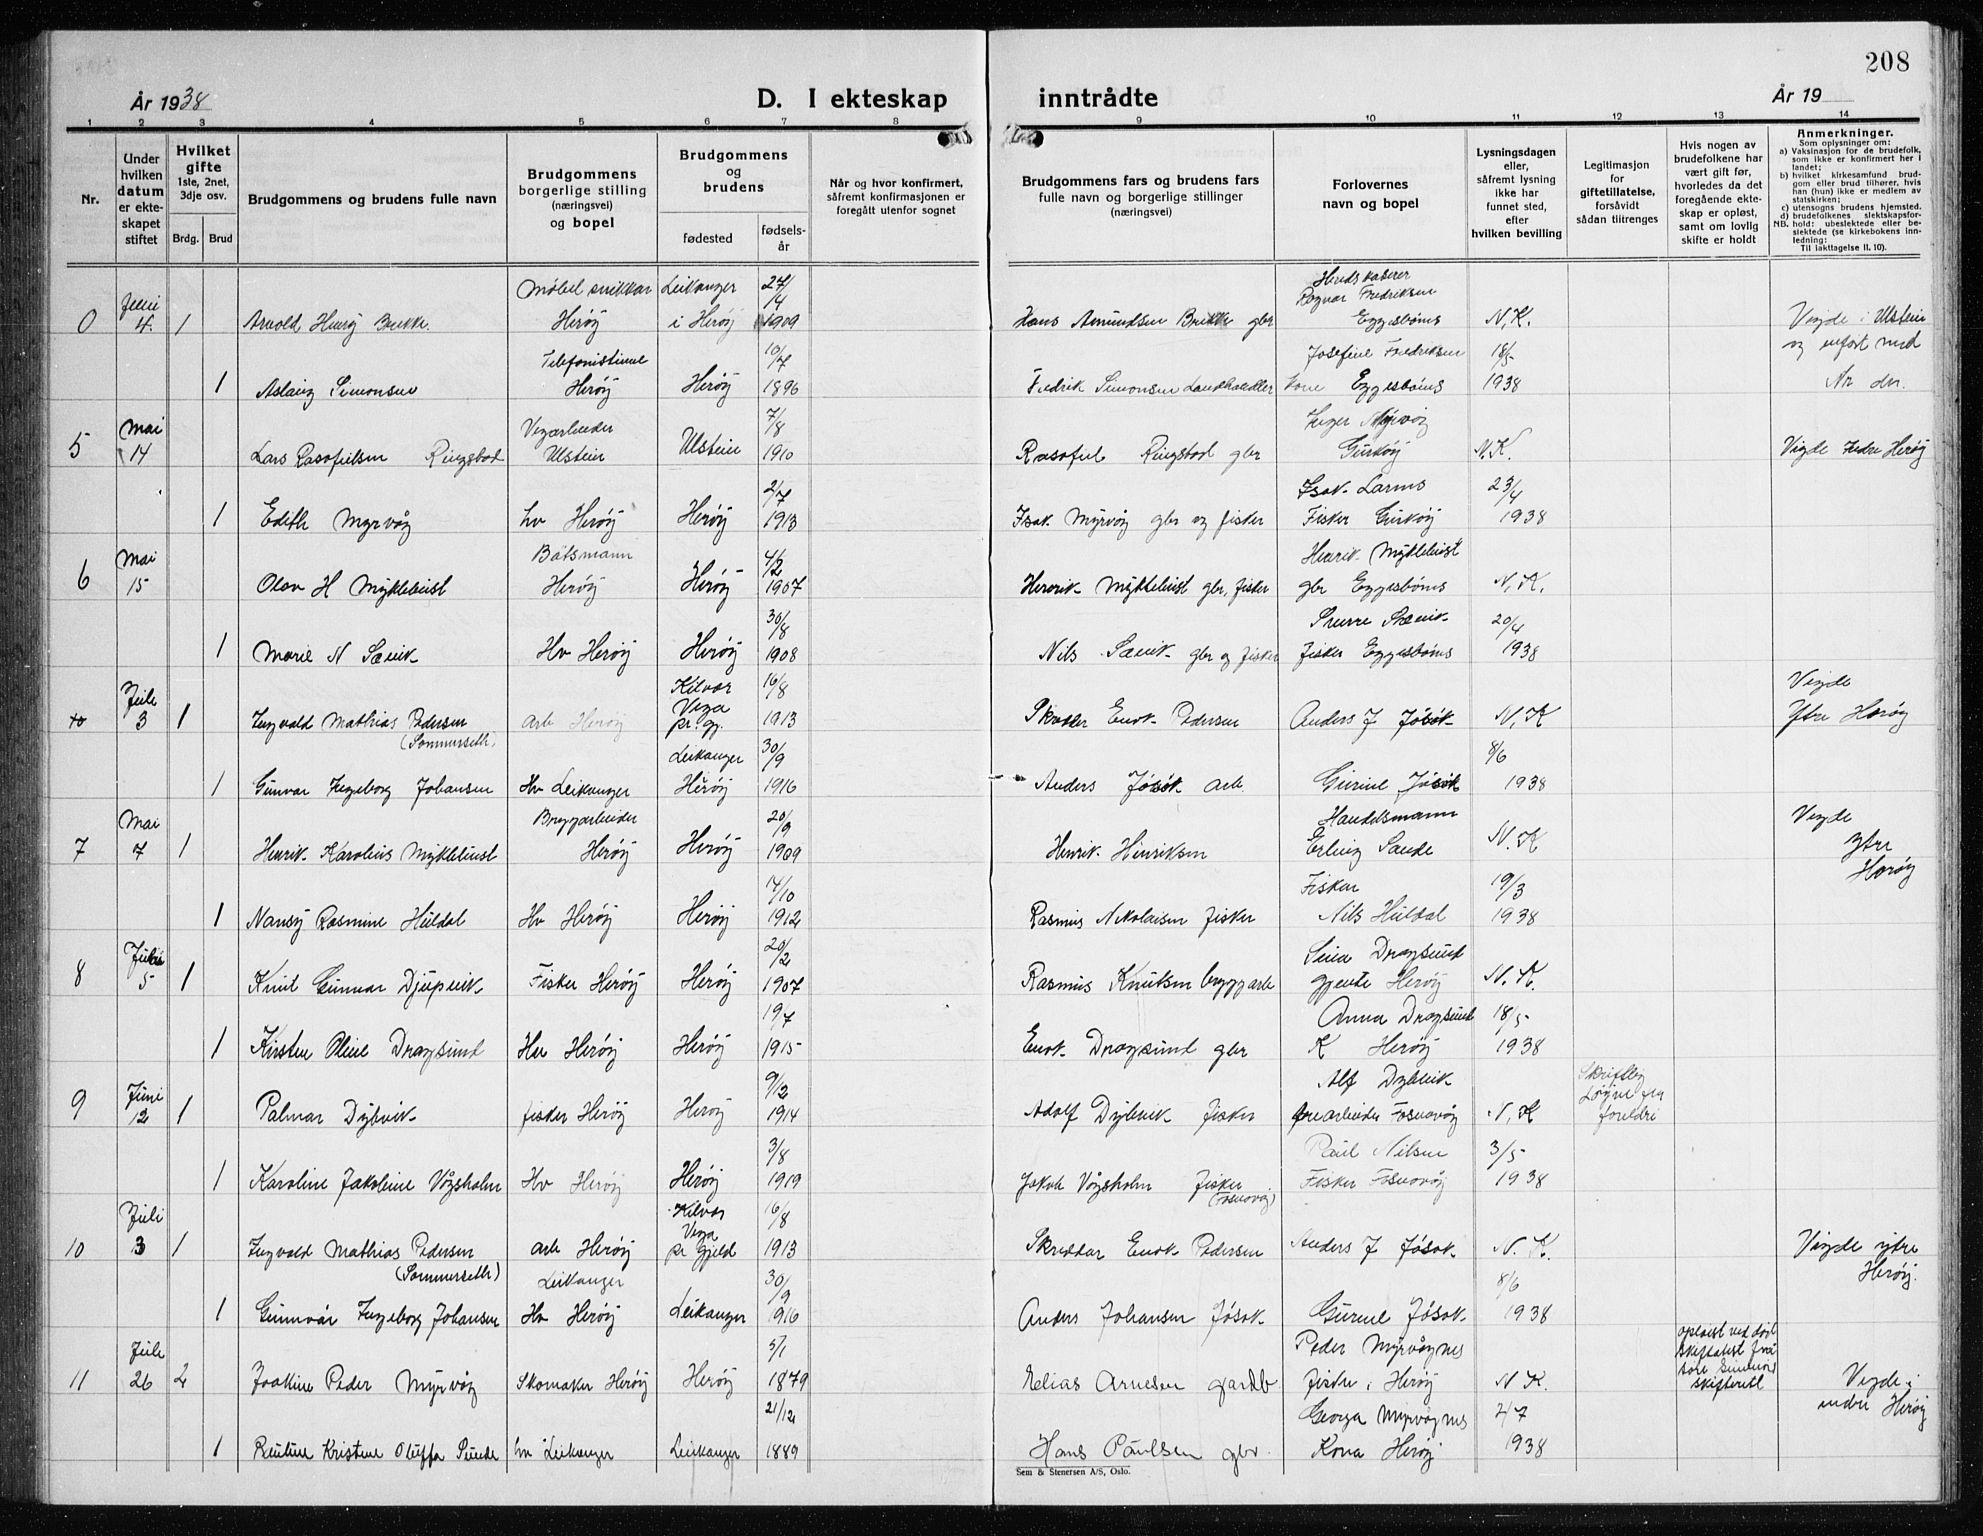 208
År 1938
D. I ekteskap
inntrådte
År 19
1 2 3 4 5 6 7 8 9 10 11 12 13 14
Nr.
Under hvilken datum er ekteskapet stiftet
Hvilket gifte
1ste, 2net, 3dje osv.
Brdg. Brud
Brudgommens og brudens fulle navn
Brudgommens borgerlige stilling (næringsvei) og bopel
Brudgommens og brudens
fødested
fødselsår
Når og hvor konfirmert, såfremt konfirmasjonen er foregått utenfor sognet
Brudgommens fars og brudens fars fulle navn og borgerlige stillinger (næringsvei)
Forlovernes navn og bopel
Lysningsdagen eller, såfremt lysning ikke har funnet sted, efter hvilken bevilling
Legitimasjon for giftetillatelse, forsåvidt sådan tiltrenges
Hvis nogen av brudefolkene har vært gift før, hvorledes da det foregående ekteskap er opløst, samt om lovlig skifte er holdt
Anmerkninger.
Som oplysninger om:
a) Vaksinasjon for de brudefolk, som ikke er konfirmert her i landet;
b) hvilket kirkesamfund brudgom eller brud tilhører, hvis han (hun) ikke er medlem av statskirken;
c) utensogns brudens hjemsted.
d) brudefolkenes slektskapsforhold: ubeslektede eller beslektede (se kirkebokens innledning:
NB.
Til iakttagelse II. 10).
0 Juni 4. 1 Arvold Henry Brekke Møbelsnikkar Herøy Leikanger i Herøy 27/4 1909 Hans Amundsen Brekke gbr Ragnar Fredriksen Eggesbønes N.K. Vigde i Ulstein
1 Aslaug Simonsen Telefonistinne Herøy Herøy 10/7 1896 Fredrik Simonsen Landhandler Josefine Fredriksen Kone Eggesbønes 18/5 1938
5 Mai 14 Lars Rasofielsen Ringstad Vegarbeider Ulstein Ulstein 7/8 1910 Ringstad gbr Inger Myrvåg Gurskøy N.K. Vigde Indre Herøy
1 Edith Myrvåg hv Herøy Herøy 2/7 1913 Isak Myrvåg gbr og fisker Isak Larsns Fisker Gurskøy 23/4 1938
6 Mai 15 Olav H Myklebust Båtsmann Herøy Herøy 4/2 1907 Henrik Myklebust gbr, fisker Henrik Myklebust gbr Eggesbønes N.K.
1 Marie N Sævik Hv Herøy Herøy 30/8 1908 Nils Sævik gbr og fisker Sverre Sævik fisker Eggesbønes 20/4 1938
10 Juli 3 1 Ingvald Mathias Pedersen (Sommerseth) arb Herøy Kilvær Vega pr.gj. 16/8 1913 Skredder Enok Pedersen Anders J Jøsok N.K Vigde Ytre Herøy
1 Gunvor Ingeborg Johansen Hv Leikanger Leikanger Herøy 30/9 1916 Anders Jøsok arb. Gurine Jøsok 8/6 1938
7 Mai 7 1 Henrik Karolius Myklebust Bryggarbeider Herøy Herøy 20/9 1909 Henrik Hinriksen Handelsmann Erling Sande N.K Vigde Ytre Herøy
1 Nansy Rasmine Huldal Hv Herøy Herøy 14/10 1912 Rasmus Nikolaisen fisker Fisker Nils Huldal 19/3 1938
8 Juni 5 1 Knut Gunnar Djupvik Fisker Herøy Herøy 20/2 1907 Rasmus Knutsen bryggarb Sina Dragsund gjente Herøy N.K.
1 Kirsten Oline Dragsund Hv Herøy Herøy 19/7 1915 Enok Dragsund gbr Anna Dragsund K Herøy 18/5 1938
9 Juni 12 1 Palmar Dybvik fisker Herøy Herøy 9/12 1914 Adolf Dybvik fisker Alf Dybvik Fosnavåg N.K Skriftleg løyve fra foreldre
1 Karoline Jakobine Vågsholm Hv Herøy Herøy 3/8 1919 Jakob Vågsholm fisker (Fosnavåg) Paul Nilsen Fisker Fosnavåg 3/5 1938
10 Juli 3 1 Ingvald Mathias Pedersen (Sommerseth) arb Herøy Kilvær Vega pr Gjeld 16/8 1913 Skreddar Enok Pedersen Anders J Jøsok N.K. Vigde ytre Herøy.
1 Gunnvår Ingeborg Johansen Leikanger Hv Herøy Leikanger 30/9 1916 Anders Johansen Jøsok Gurine Jøsok 8/6 1938
11 Juli 26 2 Joakim Peder Myrvåg Skomaker Herøy Herøy 5/1 1879 Elias Arnesen gardb. Peder Myrvågnes fisker i Herøy N K. opløist ved død skiftatest frå sore Sunnmøre skifterett Vigde i indre Herøy
1 Kristine Oluffa Sunde hv Leikanger Leikanger 21/12 1889 Hans Paulsen gbr. Georga Myrvågnes Kona Herøy 2/7 1938
Sem & Stenersen A/S, Oslo.